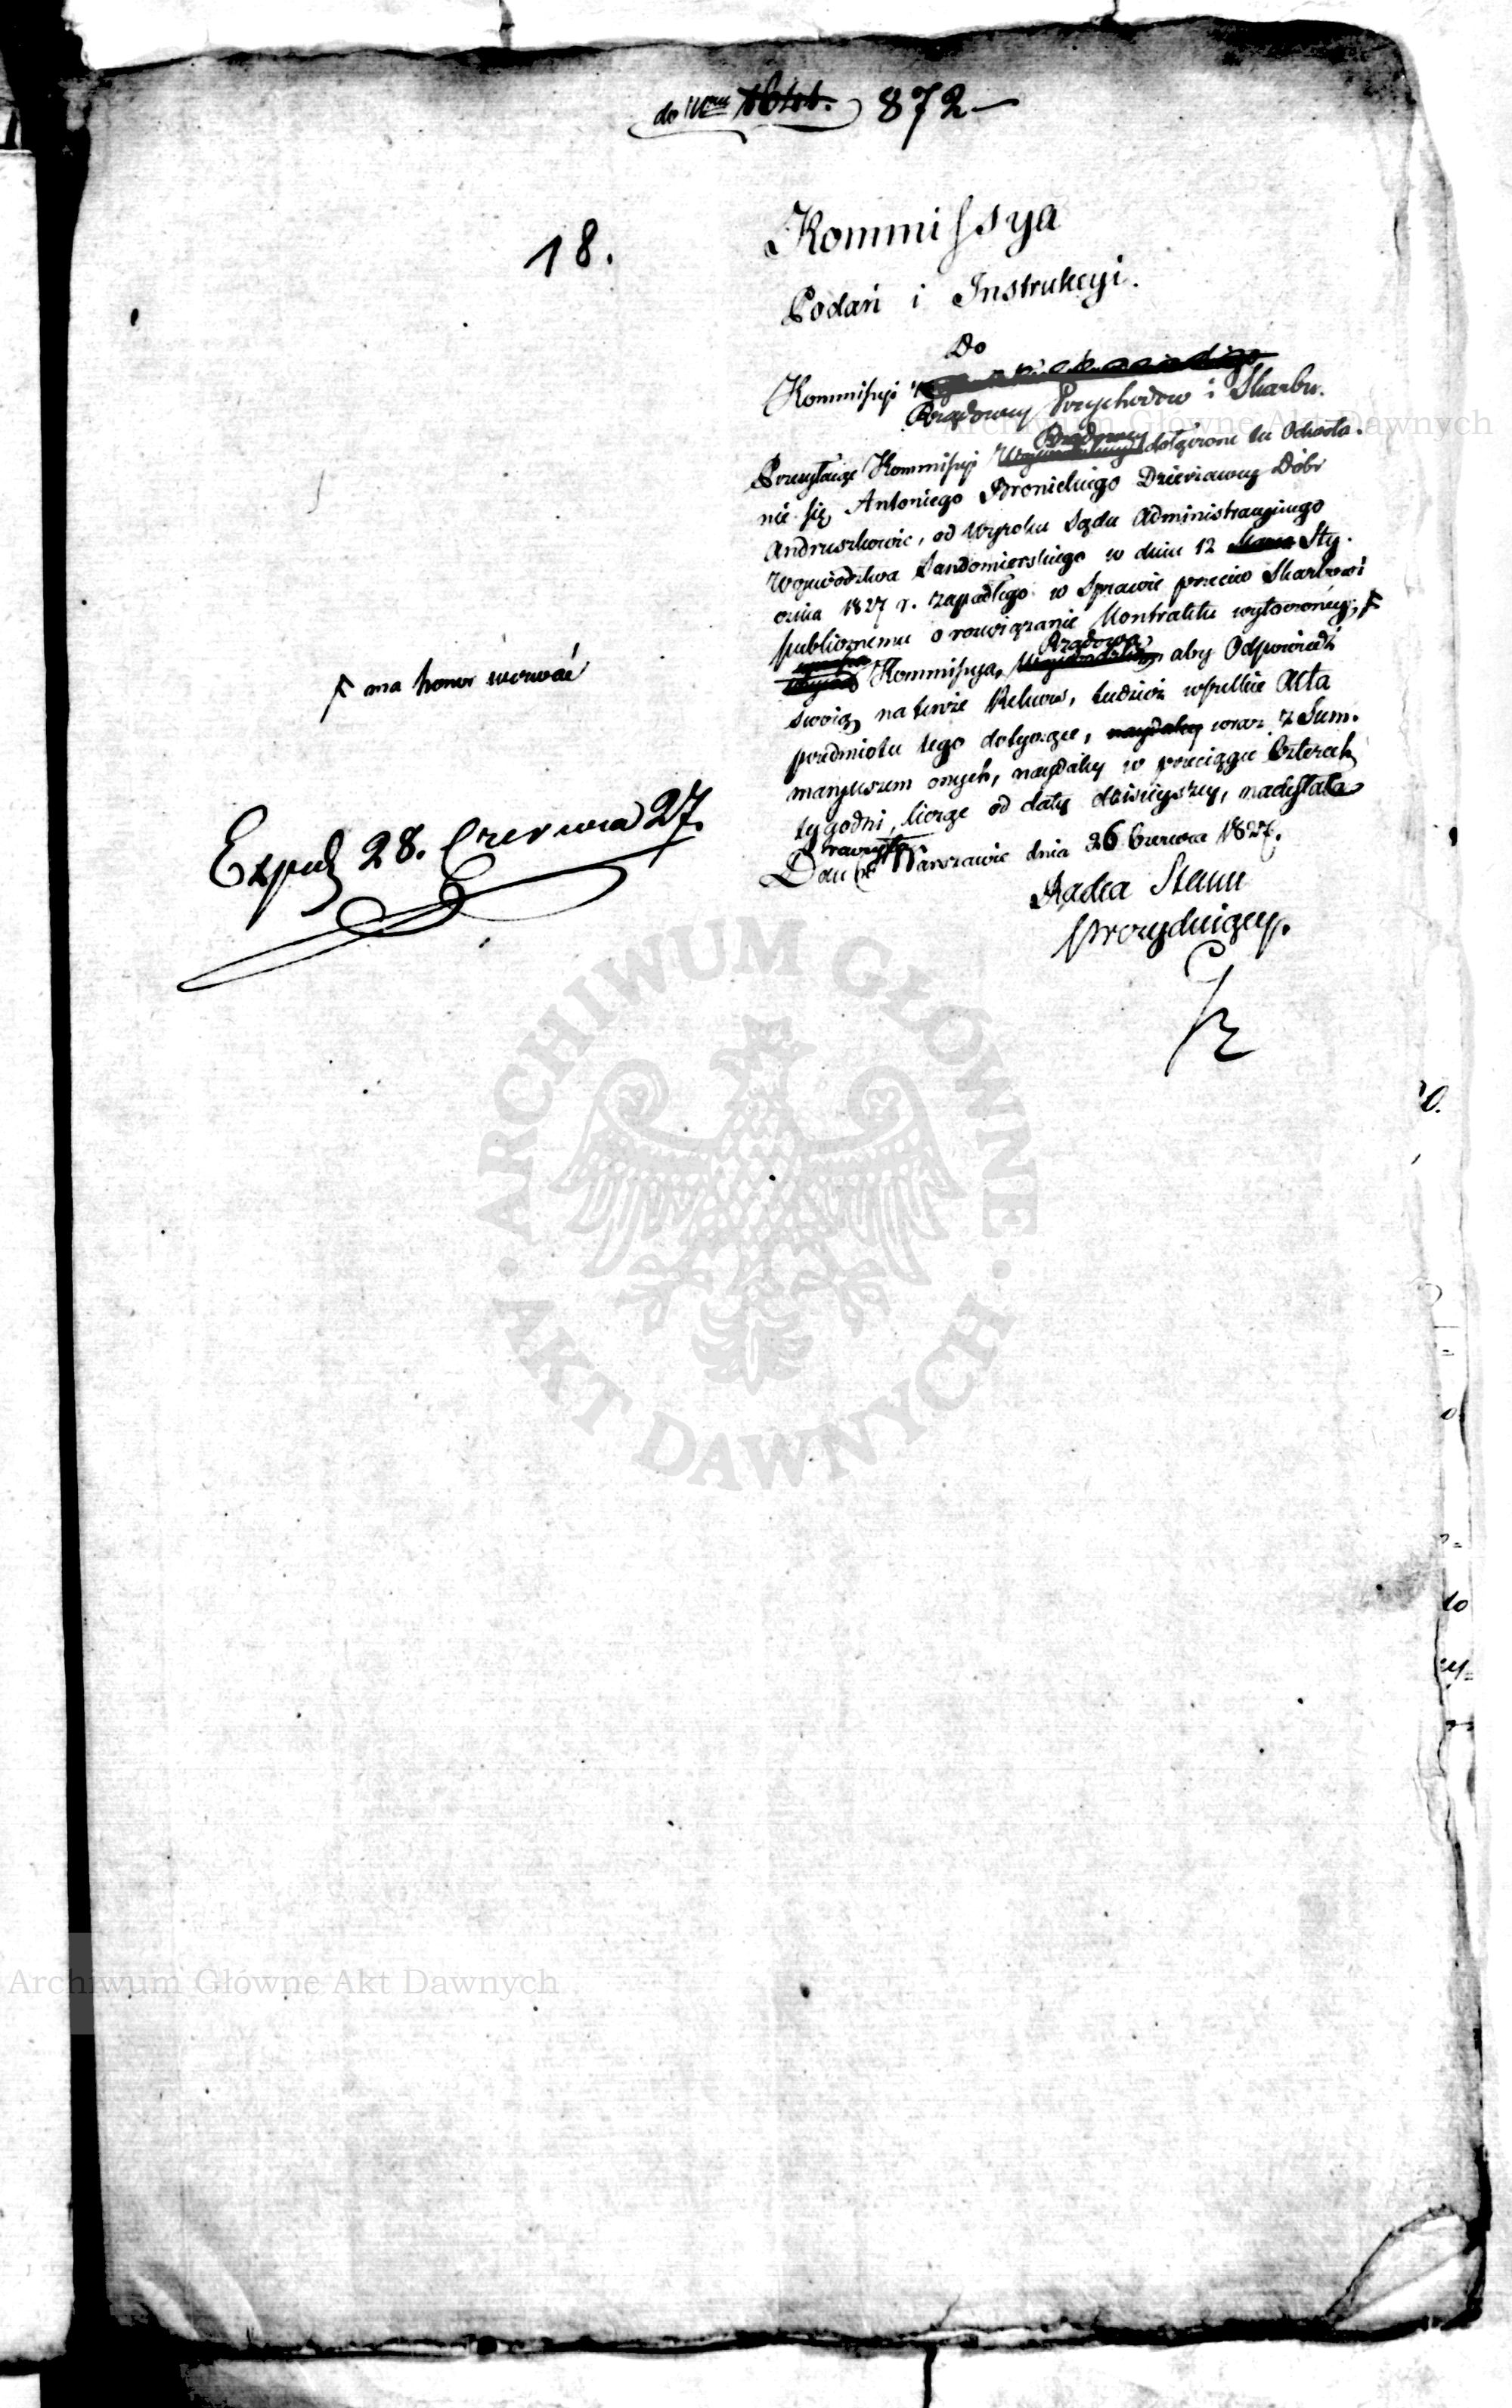 do Nru 872 —
18.
Kommissya
Podań i Instrukcyi.
Do
Kommissyi
Rządowey Przychodów i Skarbu.
Rządowey
Przesyłaiąc Kommissyi dołączone tu Odwoła-
nie się Antoniego Bronickiego Dzierżawcy Dóbr
Andruszkowic, od Wyroku Sądu Administracyinego
Woiewództwa Sandomierskiego w dniu 12 Sty-
cznia 1827 r. zapadłego w Sprawie przeciw Skarbowi
publicznemu o rozwiązanie Kontraktu wytoczoney,
Rządową
Kommissyą, aby Odpowiedź
swoię na tenże Rekurs, tudzież wszelkie Akta
przedmiotu tego dotyczące, naydaley wraz z Sum-
maryuszem onych, naydaley w przeciągu Czterech
tygodni, licząc od daty dzisieyszey, nadesłała
Dan w Warszawie dnia 26 Czerwca 1827.
Radca Stanu
Prezyduiący.
ma honor wezwać
Exped 28. Czerwca 27.
ARCHIWUM GŁÓWNE
AKT DAWNYCH
Archiwum Główne Akt Dawnych
Archiwum Główne Akt Dawnych